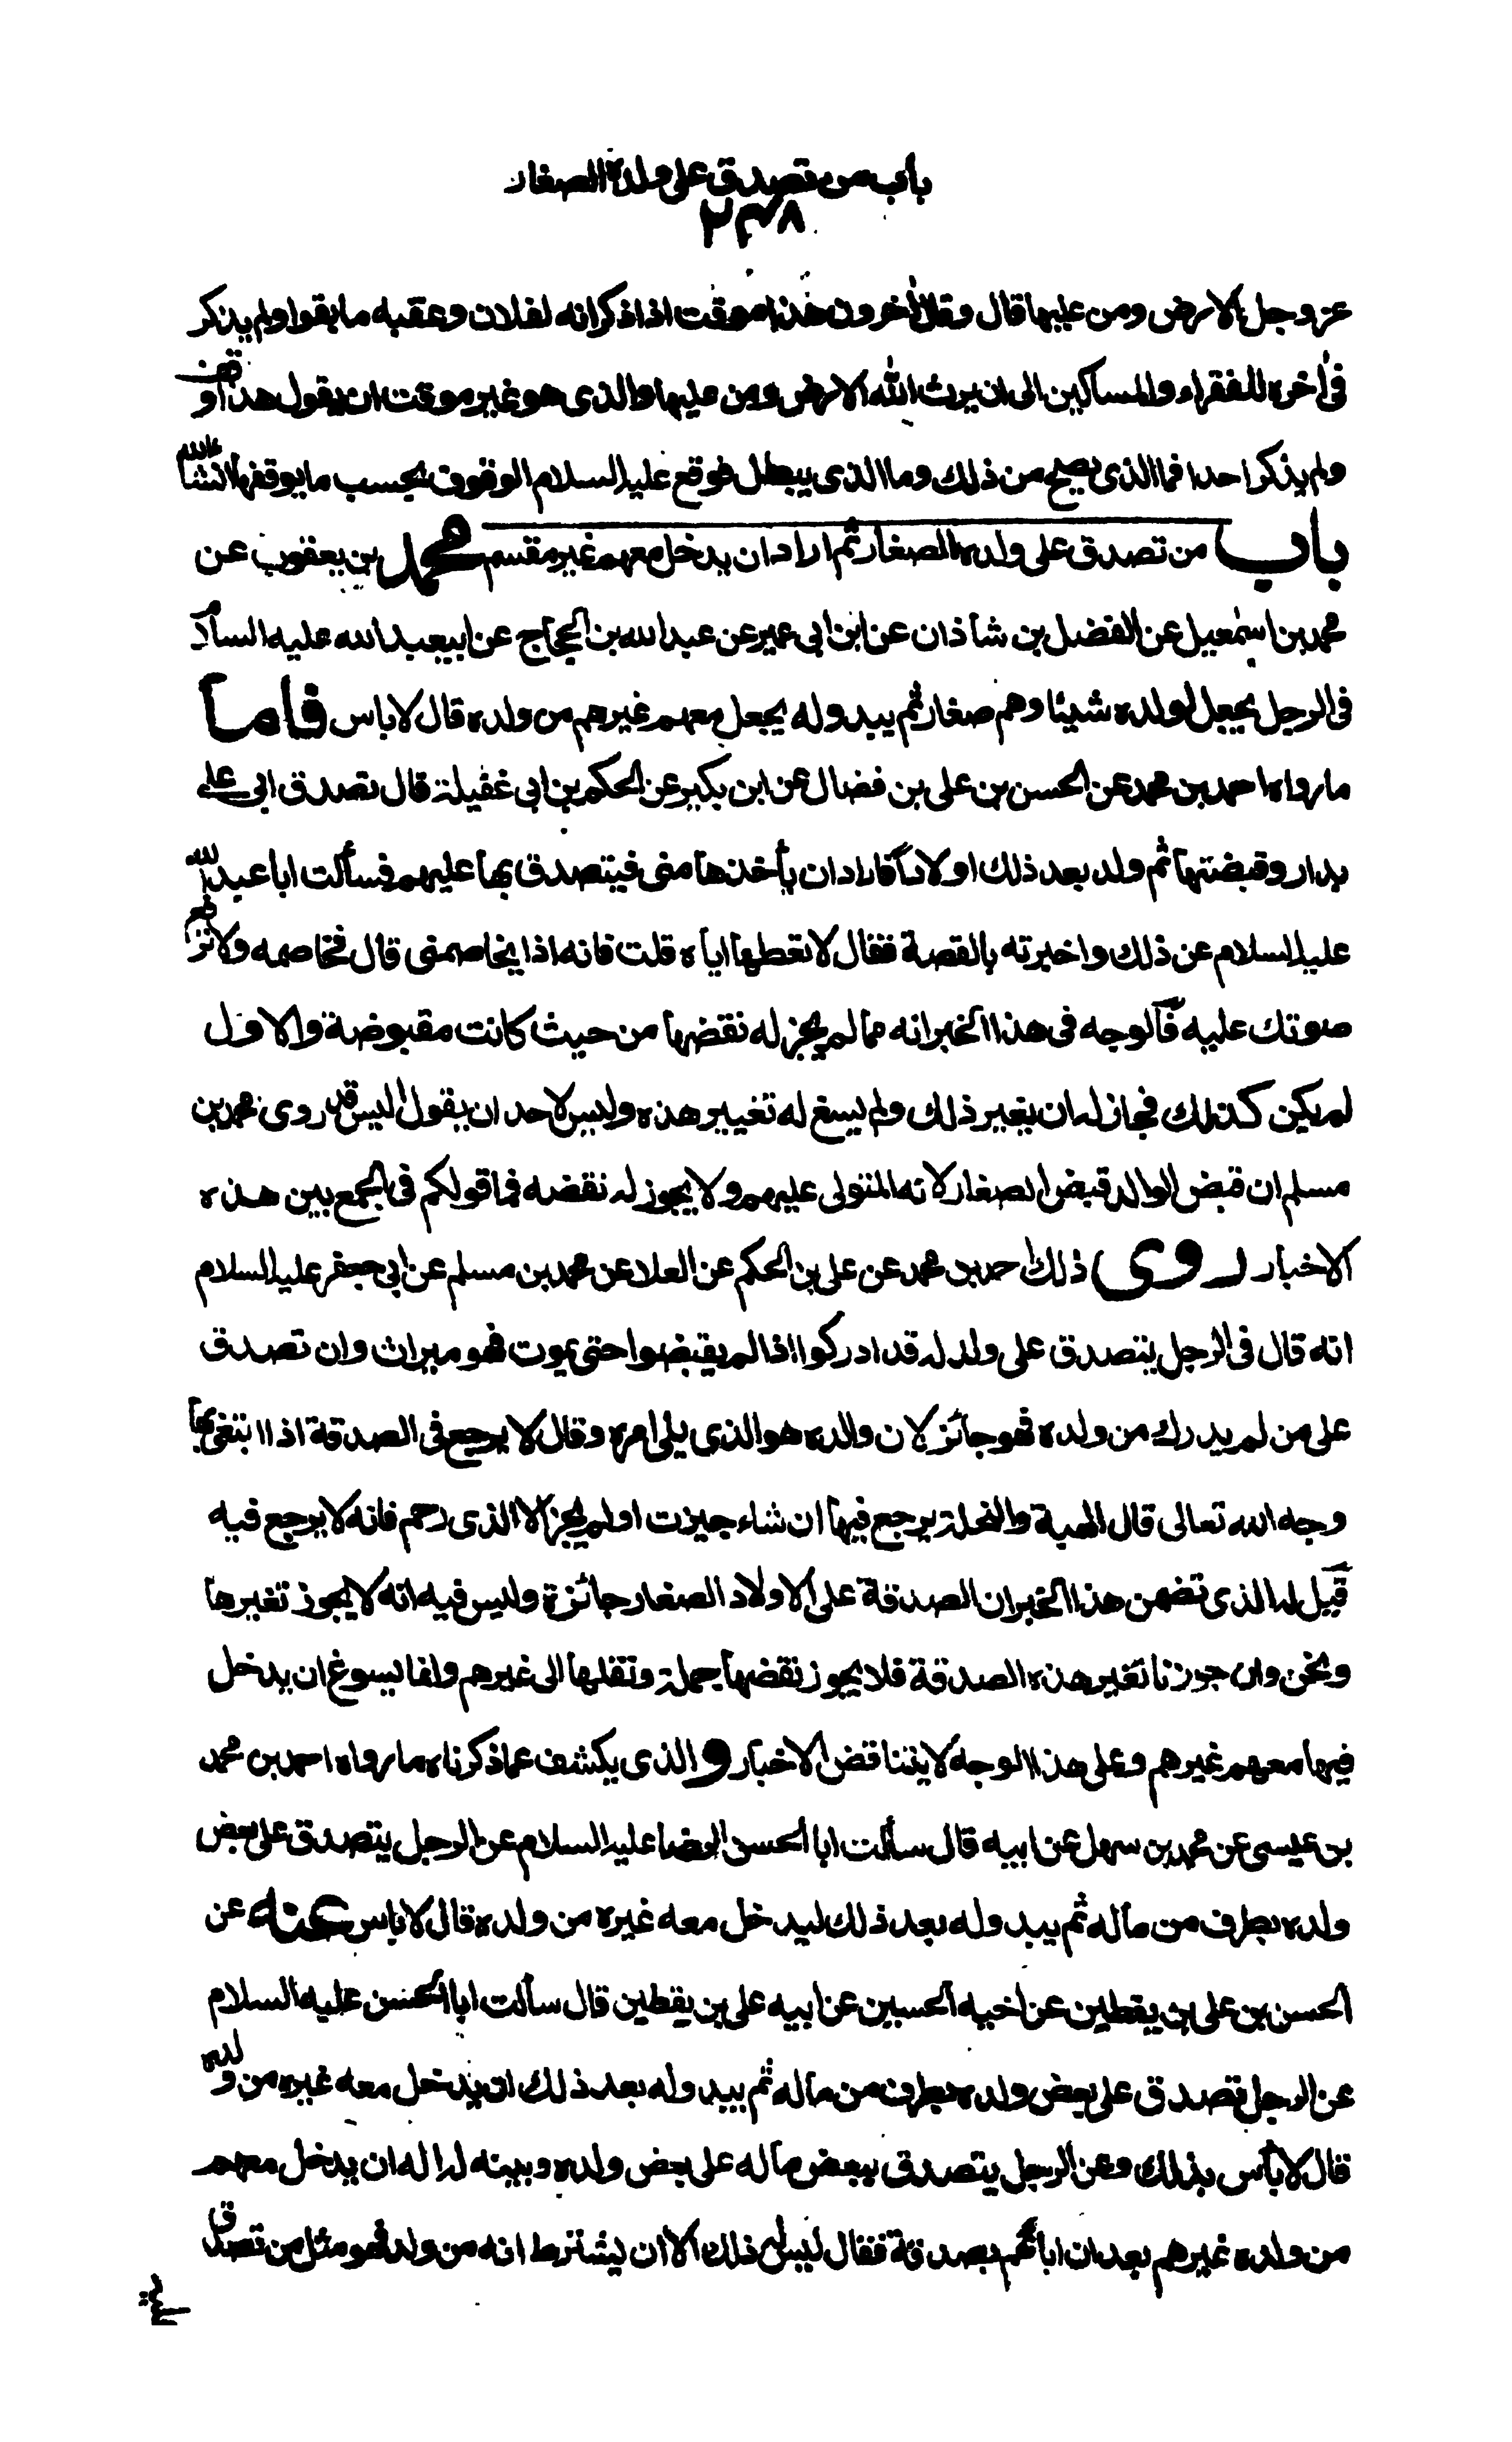 باب من تصدق على ولده الصغار
٢٣٨
عز وجل الارض ومن عليها قال وقال اخرون هذا موقت اذا ذكر انه لفلان وعقبه ما بقوا ولم يذكر
فى اخره للفقراء والمساكين الى ان يرث الله الارض ومن عليها والذى هو غير موقت ان يقول هذا وقف
ولم يذكر احدا فما الذى يصح من ذلك وما الذى يبطل فوقع عليه السلام الوقوف بحسب ما يوقفها انشا الله
باب من تصدق على ولده الصغار ثم اراد ان يدخل معهم غيرهم قسم محمد بن يعقوب عن
محمد بن اسمعيل عن الفضل بن شاذان عن ابن ابى عمير عن عبد الله بن الحجاج عن ابيعبد الله عليه السلام
فى الرجل يجعل لولده شيئا وهم صغار ثم يبدو له يجعل معهم غيرهم من ولده قال لا باس فاما
ما رواه احمد بن محمد عن الحسن بن على بن فضال عن ابن بكير عن الحكم بن ابى غفيلة قال تصدق ابى على
بدار وقبضتها ثم ولد بعد ذلك اولادا فاراد ان يأخذها منى فيتصدق بها عليهم فسألت ابا عبد الله
عليه السلام عن ذلك واخبرته بالقصة فقال لا تعطها اياه قلت فانه اذا يخاصمنى قال فخاصمه ولا ترفع
صوتك عليه فالوجه فى هذا الخبر انه مما لم يجز له نقضها من حيث كانت مقبوضة والاول
لم يكن كذلك فجاز له ان يغير ذلك ولم يسغ له تغيير هذه وليس لاحد ان يقول اليس قد روى محمد بن
مسلم ان قبض الوالد قبض الصغار لانه المتولى عليهم ولا يجوز له نقضه فما قولكم فى الجمع بين هذه
الاخبار روى ذلك احمد بن محمد عن على بن الحكم عن العلا عن محمد بن مسلم عن ابى جعفر عليه السلام
انه قال فى الرجل يتصدق على ولد له قد ادركوا اذا لم يقبضوا حتى يموت فهو ميراث وان تصدق
على من لم يدرك من ولده فهو جائز لان والده هو الذى يلى امره وقال لا يرجع فى الصدقة اذا ابتغى بها
وجه الله تعالى قال الهبة والنحلة يرجع فيها ان شاء حيزت او لم يحز الا الذى رحم فانه لا يرجع فيه
قيل له الذى تضمن هذا الخبر ان الصدقة على الاولاد الصغار جائزة وليس فيه انه لا يجوز تغيرها
ونحن وان جوزنا تغير هذه الصدقة فلا يجوز نقضها جملة ونقلها الى غيرهم وانما يسوغ ان يدخل
فيها معهم غيرهم وعلى هذا الوجه لا يتناقض الاخبار والذى يكشف عما ذكرناه ما رواه احمد بن محمد
بن عيسى عن محمد بن سهل عن ابيه قال سألت ابا الحسن الرضا عليه السلام عن الرجل يتصدق على بعض
ولده بطرف من ماله ثم يبدو له بعد ذلك ليدخل معه غيره من ولده قال لا باس عنه عن
الحسن بن على بن يقطين عن اخيه الحسين عن ابيه على بن يقطين قال سألت ابا الحسن عليه السلام
عن الرجل تصدق على بعض ولده بطرف من ماله ثم يبدو له بعد ذلك ان يدخل معه غيره من ولده
قال لا بأس بذلك وعن الرجل يتصدق ببعض ماله على بعض ولده ويبينه له اله ان يدخل معهم
من ولده غيرهم بعد ان ابانهم بصدقة فقال ليس له ذلك الا ان يشترط انه من ولد فهو مثل من تصدق